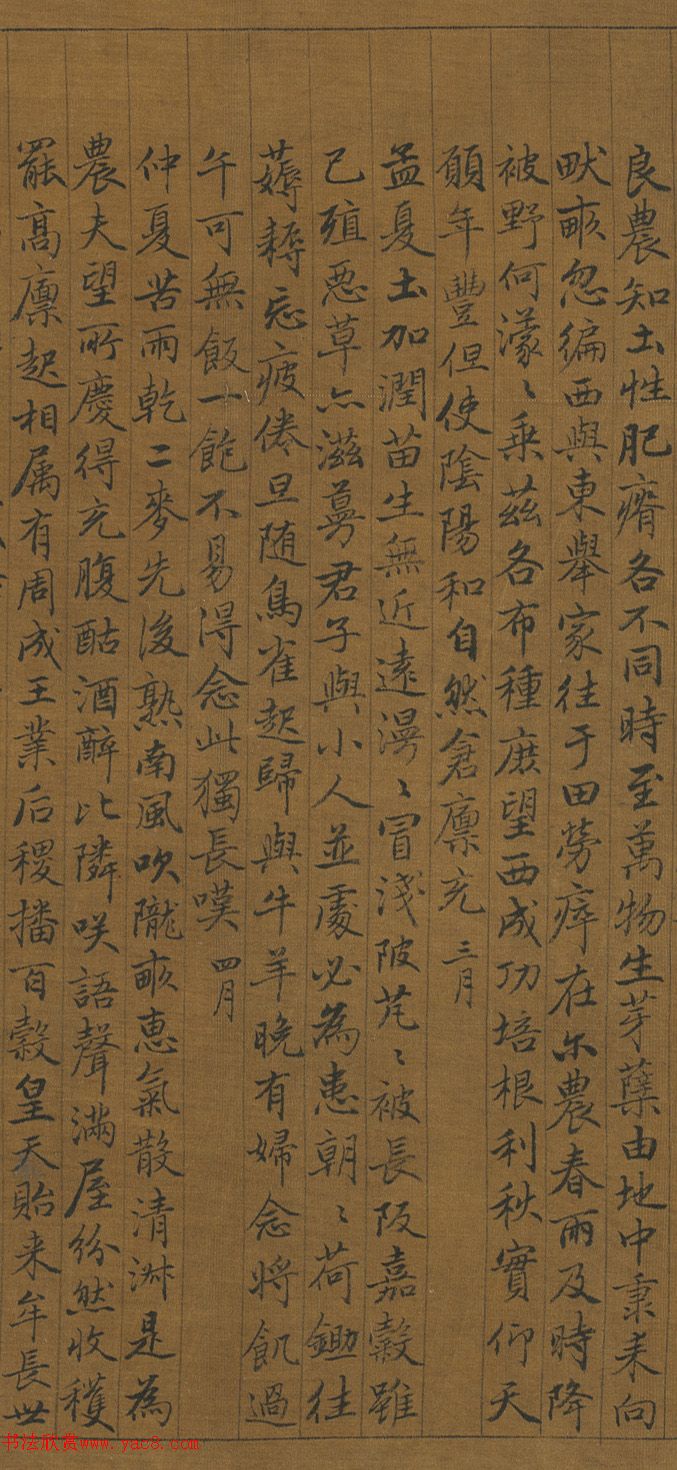 良農知土性肥瘠各不同時至萬物生芽蘖由地中秉耒向
畎畝忽徧西與東舉家往于田勞瘁在尒農春雨及時降
被野何濛〻乗茲各布種庶望西成功培根利秋實仰天
願年豐但使陰陽和自然倉廪充 三月
孟夏土加潤苗生無近遠漫〻冒淺陂芃〻被長阪嘉穀雖
已殖惡草亦滋蔓君子與小人並處必為患朝〻荷鋤往
薅耨忘疲倦旦随鳥雀起歸與牛羊晚有婦念將飢過
午可無飯一飽不易得念此獨長嘆 四月
仲夏苦雨乾二麥先後熟南風吹隴畝惠氣散清淑是為
農夫望所慶得充腹酤酒醉比隣咲語聲滿屋紛然收穫
罷高廪起相属有周成王業后稷播百穀皇天貽来牟長世
书法欣赏www.yac8.com